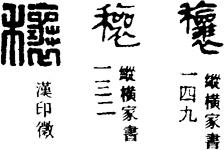 穰
縱橫家書
一四九
穰
縱橫家書
一三二
穰
漢印徵